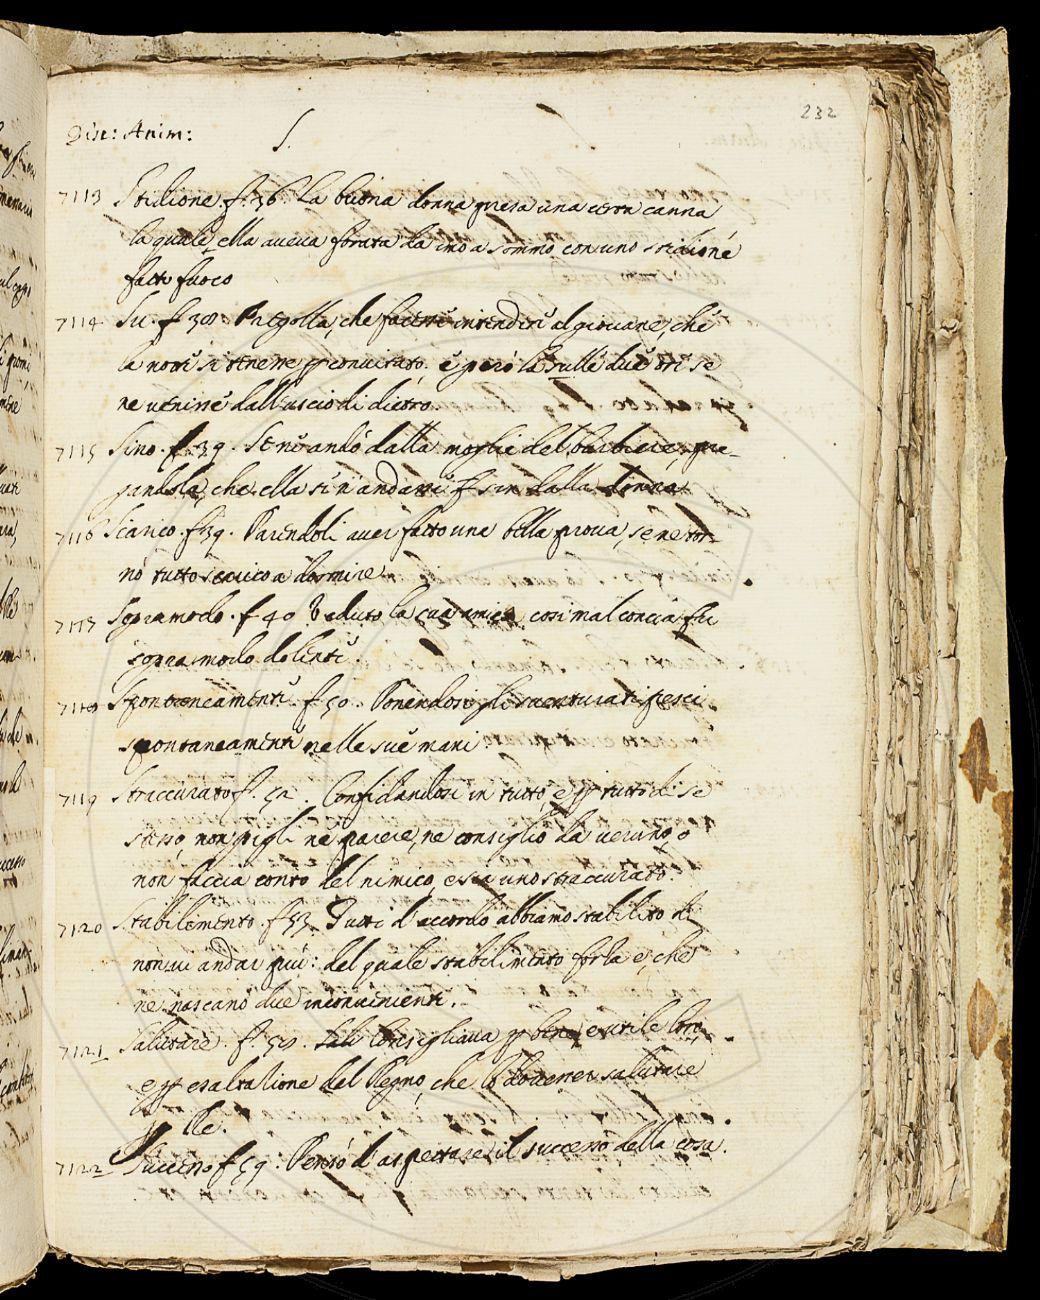 232
Disc: Anim:
S.
7113 Stidione f. 36. La buona donna presa una certa canna
la quale ella aueua forata da imo a sommo con uno stidione
fatto fuoco
7114 Su. f. 38. Pregolla, che facesse intendere al giouane, che
la notte si tenesse p conuitato. e però là sulle due ore se
ne uenisse dall'uscio di dietro.
7115 Sino. f. 39. Se n'andò dalla moglie del barbiere, pre-
gandola, che ella si n'andasse f sin dalla donna
7116 Scarico. f. 39. Parendoli auer fatto una bella proua, se ne tor-
nò tutto scarico a dormire.
7117 Sopramodo. f. 40 Veduto la cara amica così mal concia fu
sopra modo dolente.
7118 Spontaneamente. f. 50. Ponendosi gli suenturati pesci
spontaneamente nelle sue mani
7119 Straccurato f. 52. Confidandosi in tutto, e p tutto di se
stesso, non pigli nè parere, ne consiglio da ueruno, o
non faccia conto del nimico, e sia uno straccurato.
7120 Stabilimento. f. 53. Tutti d'accordo abbiamo stabilito di
non ui andar più: del quale stabilimento forza è, che
ne nascano due inconuenienti.
7121 Salutare. f. 58. consigliaua p bene, e utile loro,
e p esaltazione del Regno, che lo douesser salutare
Re.
7122 Successo f. 59. Pensò d'aspettare il successo della cosa.